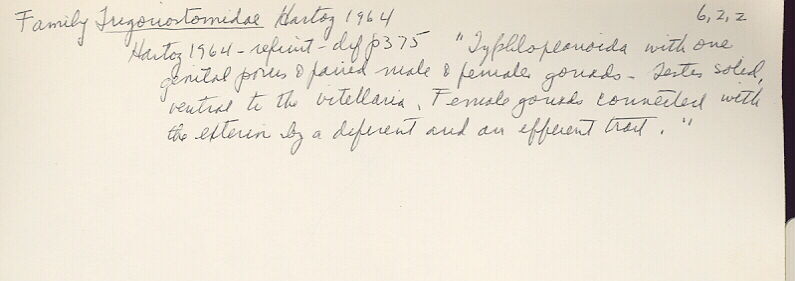 Family Trigonostomidae Hartog 1964 6,2,2
Hartog 1964 - reprint - def p375 "Typhloplanoida with one
genital porus & paired male & females gonads - Testes solid,
ventral to the vitellaria. Female gonads connected with
the exterior by a deferent and an efferent tract."